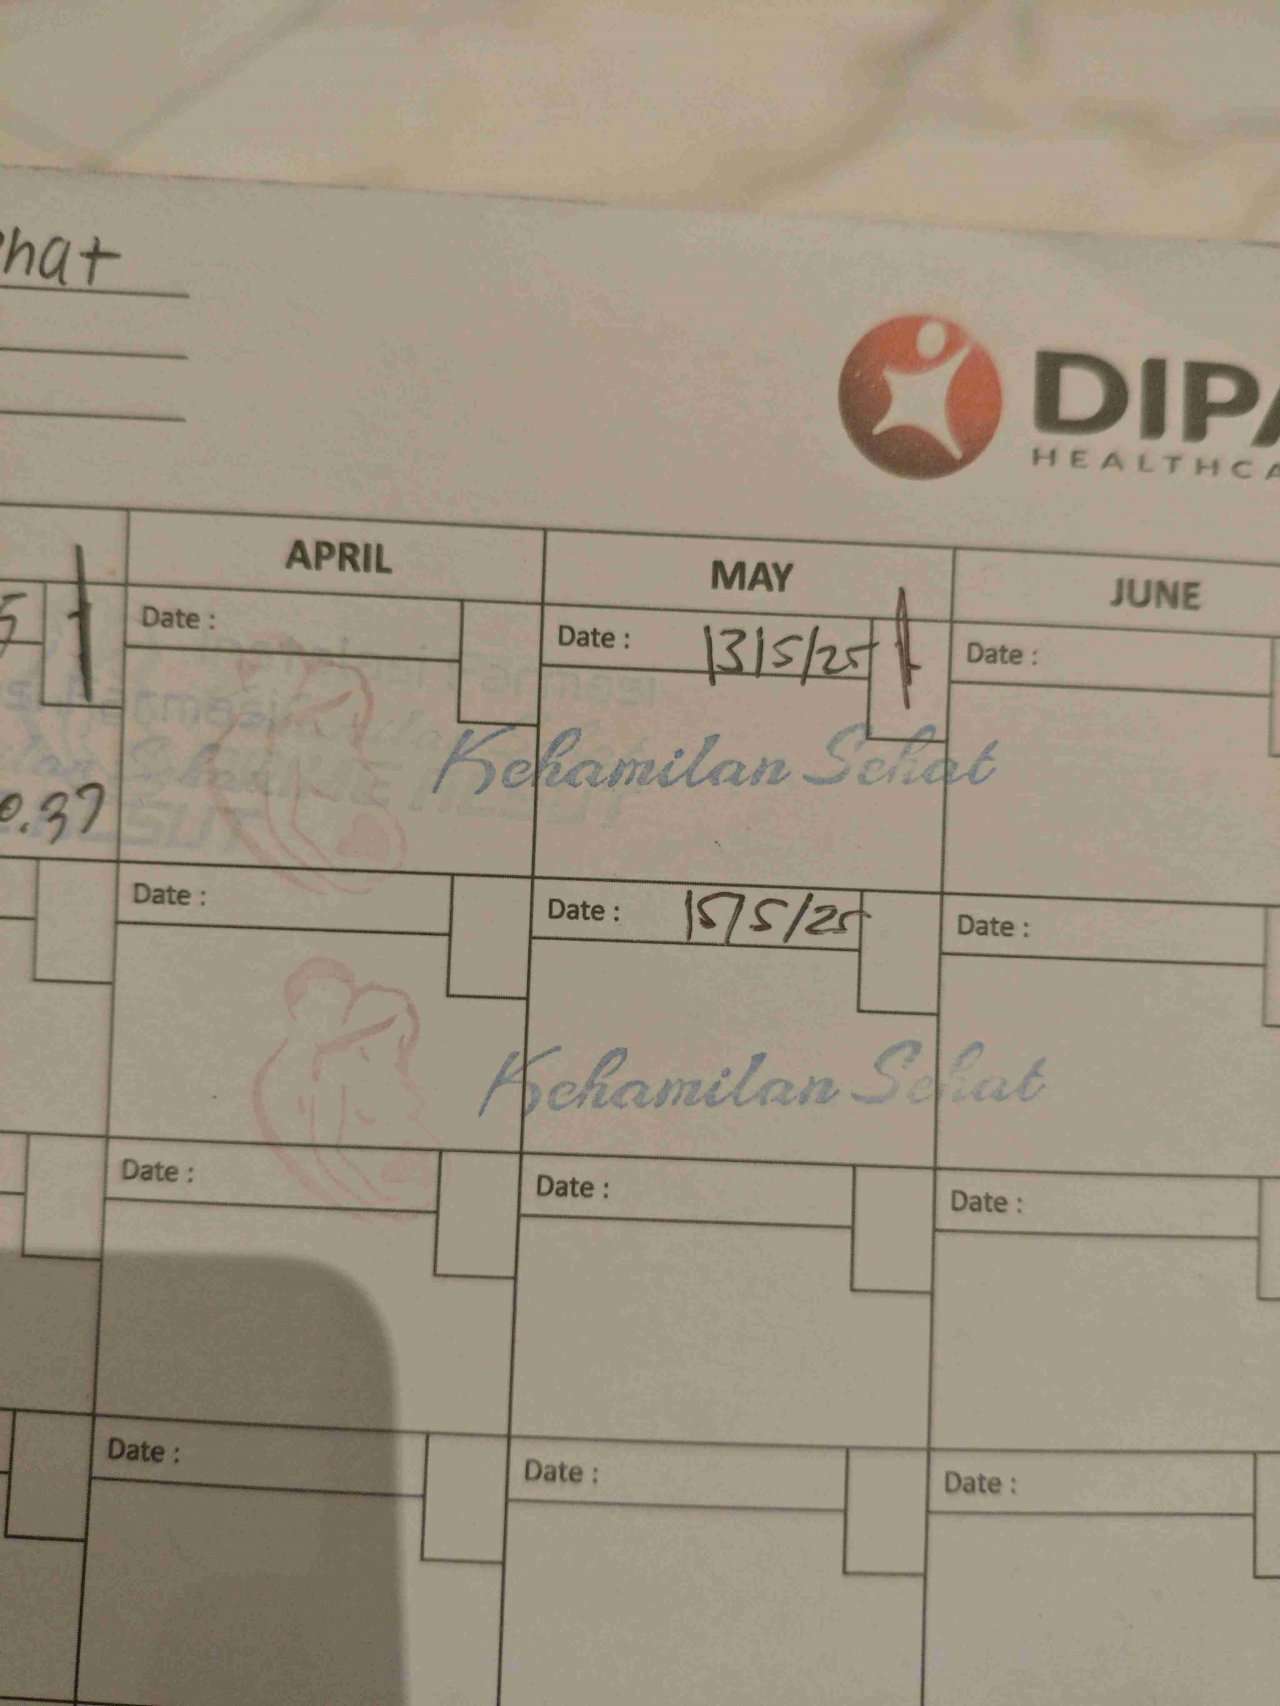 DIPA
HEALTHCA
APRIL MAY JUNE
Date : Date : 13/5/25 Date :
Kehamilan Sehat
Date : Date : 15/5/25 Date :
Kehamilan Sehat
Date : Date : Date :
Date : Date : Date :